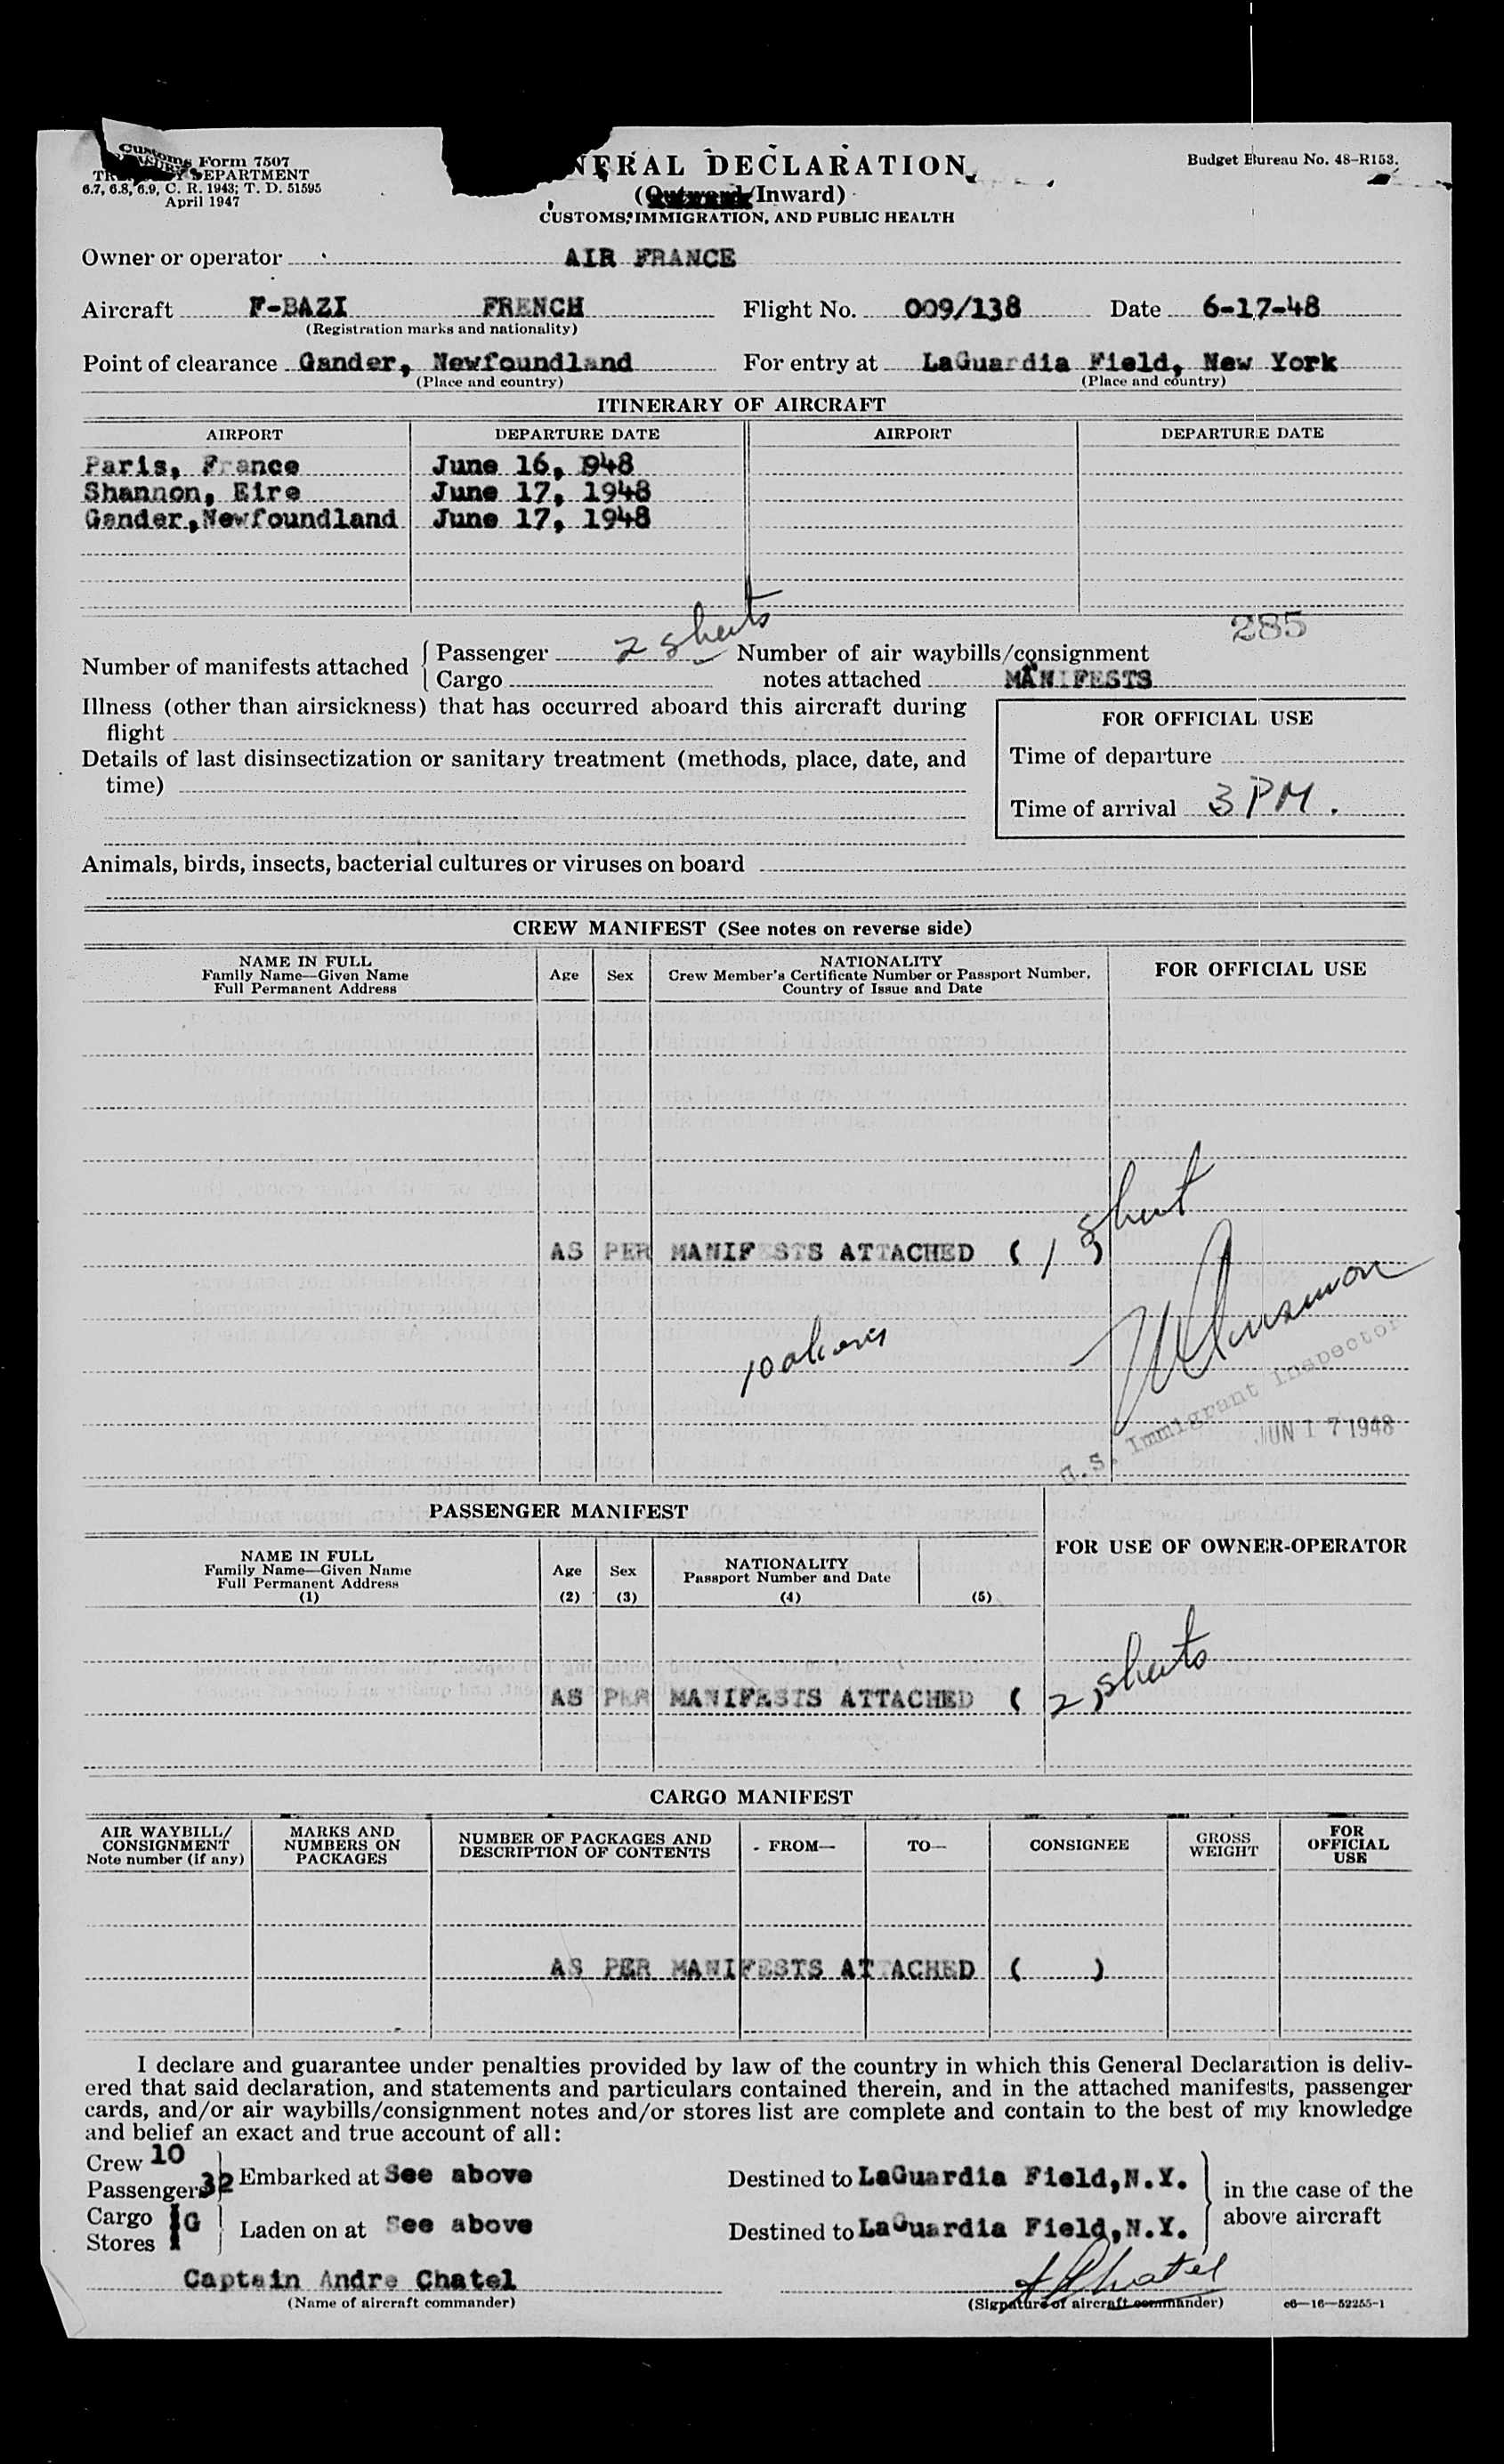 Customs Form 7507
DEPARTMENT
6.7, 6.8, 6.9, C. R. 1943; T. D. 51595
April 1947
NERAL DECLARATION
(Outward/Inward)
CUSTOMS, IMMIGRATION, AND PUBLIC HEALTH
Budget Bureau No. 48-R153.
Owner or operator AIR FRANCE
Aircraft F-BAZI FRENCH Flight No. 009/138 Date 6-17-48
(Registration marks and nationality)
Point of clearance Gander, Newfoundland For entry at LaGuardia Field, New York
(Place and country) (Place and country)
ITINERARY OF AIRCRAFT
AIRPORT DEPARTURE DATE AIRPORT DEPARTURE DATE
Paris, France June 16, 948
Shannon, Eire June 17, 1948
Gander,Newfoundland June 17, 1948
285
Number of manifests attached
Passenger 2 sheets
Cargo
Number of air waybills/consignment
notes attached MANIFESTS
Illness (other than airsickness) that has occurred aboard this aircraft during
flight
Details of last disinsectization or sanitary treatment (methods, place, date, and
time)
FOR OFFICIAL USE
Time of departure
Time of arrival 3 PM.
Animals, birds, insects, bacterial cultures or viruses on board
CREW MANIFEST (See notes on reverse side)
NAME IN FULL
Family Name—Given Name
Full Permanent Address
Age Sex
NATIONALITY
Crew Member's Certificate Number or Passport Number,
Country of Issue and Date
FOR OFFICIAL USE
AS PER MANIFESTS ATTACHED ( 1 ) sheet
10 aliens
U.S. Immigrant Inspector
JUN 17 1948
PASSENGER MANIFEST
FOR USE OF OWNER-OPERATOR
NAME IN FULL
Family Name—Given Name
Full Permanent Address
(1)
Age
(2)
Sex
(3)
NATIONALITY
Passport Number and Date
(4) (5)
AS PER MANIFESTS ATTACHED ( 2 ) sheets
CARGO MANIFEST
AIR WAYBILL/
CONSIGNMENT
Note number (if any)
MARKS AND
NUMBERS ON
PACKAGES
NUMBER OF PACKAGES AND
DESCRIPTION OF CONTENTS
FROM— TO— CONSIGNEE
GROSS
WEIGHT
FOR
OFFICIAL
USE
AS PER MANIFESTS ATTACHED ( )
I declare and guarantee under penalties provided by law of the country in which this General Declaration is deliv-
ered that said declaration, and statements and particulars contained therein, and in the attached manifests, passenger
cards, and/or air waybills/consignment notes and/or stores list are complete and contain to the best of my knowledge
and belief an exact and true account of all:
Crew 10
Passengers 32 Embarked at See above Destined to LaGuardia Field,N.Y.
in the case of the
above aircraft
Cargo G
Stores
Laden on at See above Destined to LaGuardia Field,N.Y.
Captain Andre Chatel A Chatel
(Name of aircraft commander) (Signature of aircraft commander) c6—16—52255-1